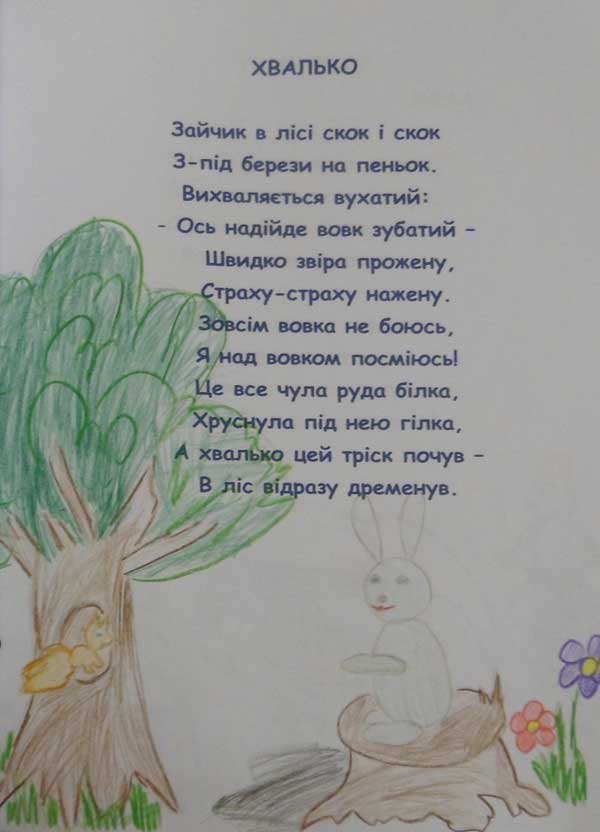 ХВАЛЬКО
Зайчик в лісі скок і скок
З-під берези на пеньок.
Вихваляється вухатий:
- Ось надійде вовк зубатий –
Швидко звіра прожену,
Страху-страху нажену.
Зовсім вовка не боюсь,
Я над вовком посміюсь!
Це все чула руда білка,
Хруснула під нею гілка,
А хвалько цей тріск почув –
В ліс відразу дременув.